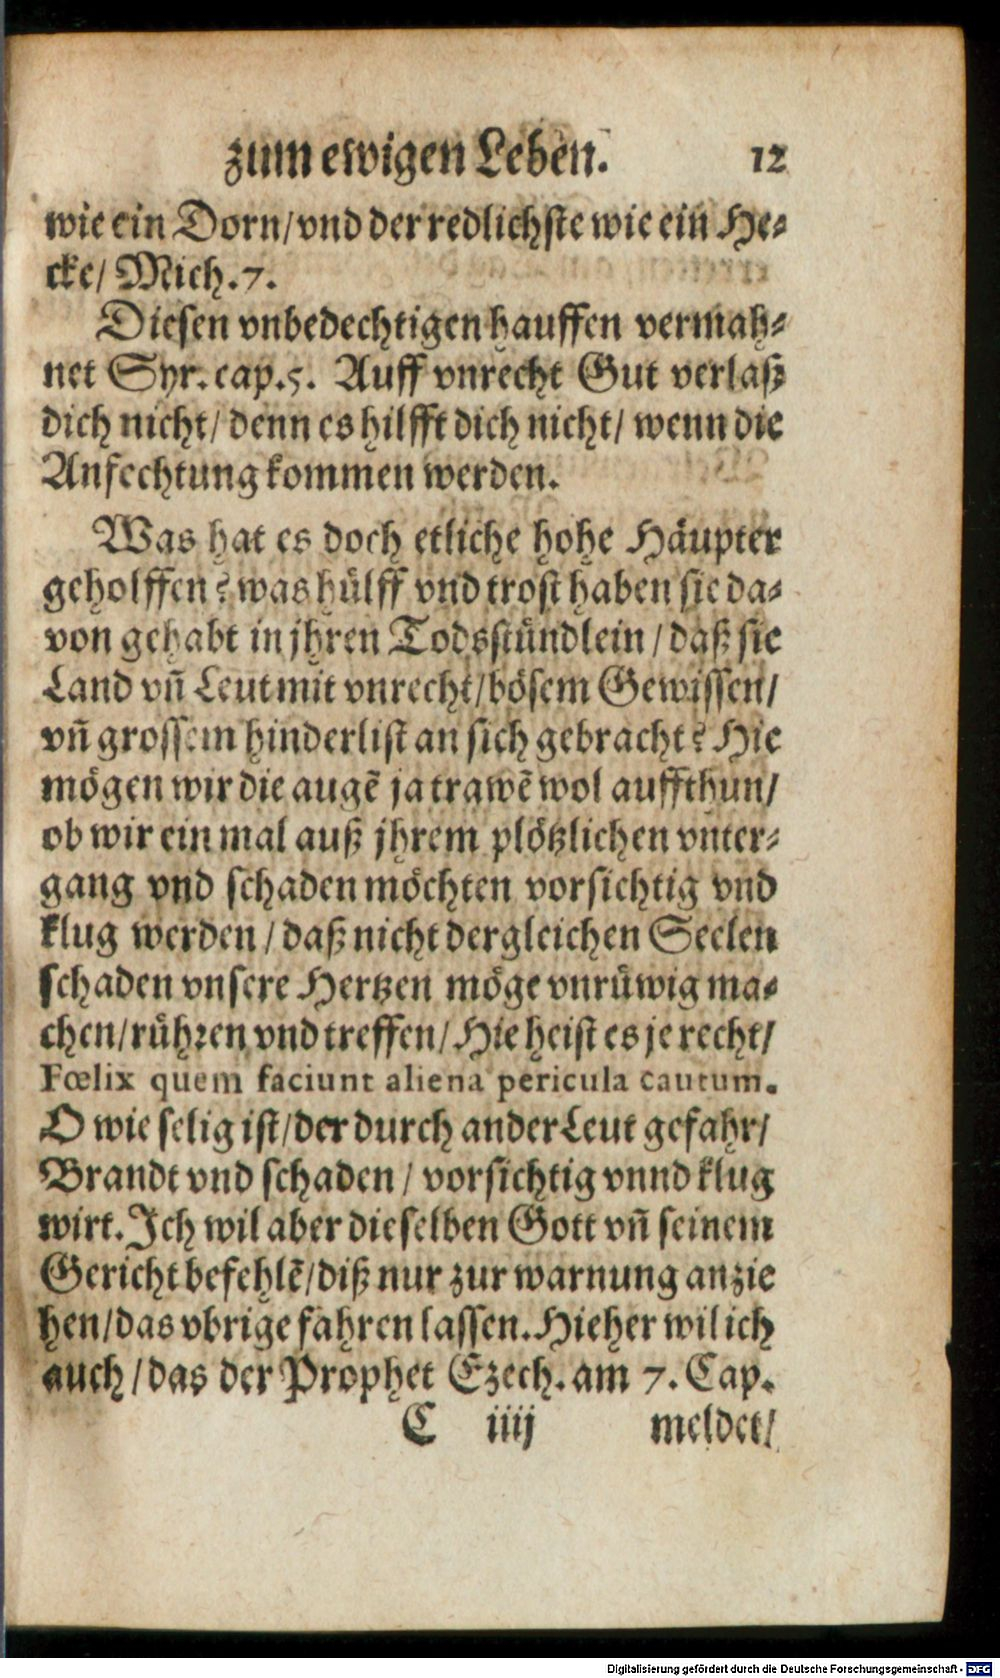 zum ewigen Leben. 12
wie ein Dorn/ vnd der redlichste wie ein He-
cke/ Mich. 7.
Diesen vnbedechtigen hauffen vermah-
net Syr. cap. 5. Auff vnrecht Gut verlaß
dich nicht/ denn es hilfft dich nicht/ wenn die
Anfechtung kommen werden.
Was hat es doch etliche hohe Häupter
geholffen? was hülff vnd trost haben sie da-
von gehabt in jhren Todsstündlein/ daß sie
Land vñ Leut mit vnrecht/ bösem Gewissen/
vñ grossem hinderlist an sich gebracht? Hie
mögen wir die augẽ ja trawẽ wol auffthun/
ob wir ein mal auß jhrem plötzlichen vnter-
gang vnd schaden möchten vorsichtig vnd
klug werden/ daß nicht dergleichen Seelen
schaden vnsere Hertzen möge vnrüwig ma-
chen/ rühren vnd treffen/ Hie heist es je recht/
Fœlix quem faciunt aliena pericula cautum.
O wie selig ist/ der durch ander Leut gefahr/
Brandt vnd schaden/ vorsichtig vnnd klug
wirt. Ich wil aber dieselben Gott vñ seinem
Gericht befehlẽ/ diß nur zur warnung anzie
hen/ das vbrige fahren lassen. Hieher wil ich
auch/ das der Prophet Ezech. am 7. Cap.
C iiij meldet/
Digitalisierung gefördert durch die Deutsche Forschungsgemeinschaft - DFG